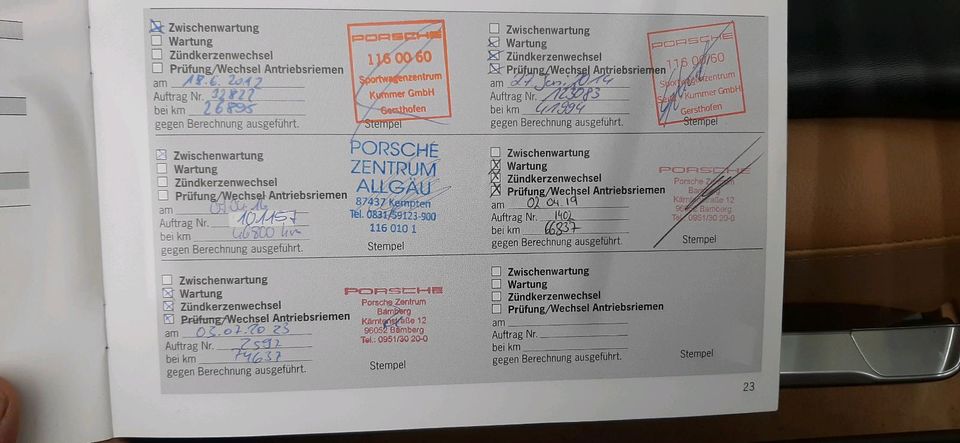 Zwischenwartung
Wartung
Zündkerzenwechsel
Prüfung/Wechsel Antriebsriemen
am 18.6.2012
Auftrag Nr. 32822
bei km 26895
gegen Berechnung ausgeführt.
PORSCHE
116 00 60
Sportwagenzentrum
Kummer GmbH
Gersthofen
Stempel
Zwischenwartung
Wartung
Zündkerzenwechsel
Prüfung/Wechsel Antriebsriemen
am 27 2014
Auftrag Nr. 103083
bei km 41994
gegen Berechnung ausgeführt.
PORSCHE
116 00/60
Sportwagenzentrum
Kummer GmbH
Gersthofen
Stempel
Zwischenwartung
Wartung
Zündkerzenwechsel
Prüfung/Wechsel Antriebsriemen
am
Auftrag Nr. 101157
bei km 46800 km
gegen Berechnung ausgeführt.
PORSCHE
ZENTRUM
ALLGÄU
87437 Kempten
Tel. 0831/59123-900
116 010 1
Stempel
Zwischenwartung
Wartung
Zündkerzenwechsel
Prüfung/Wechsel Antriebsriemen
am 02 04.19
Auftrag Nr. 1402
bei km 66837
gegen Berechnung ausgeführt.
PORSCHE
Porsche Zentrum
Bamberg
Kärntenstraße 12
96052 Bamberg
Tel.: 0951/30 20-0
Stempel
Zwischenwartung
Wartung
Zündkerzenwechsel
Prüfung/Wechsel Antriebsriemen
am 03.07.2023
Auftrag Nr. 2592
bei km 74637
gegen Berechnung ausgeführt.
PORSCHE
Porsche Zentrum
Bamberg
Kärntenstraße 12
96052 Bamberg
Tel.: 0951/30 20-0
Stempel
Zwischenwartung
Wartung
Zündkerzenwechsel
Prüfung/Wechsel Antriebsriemen
am
Auftrag Nr.
bei km
gegen Berechnung ausgeführt.
Stempel
23